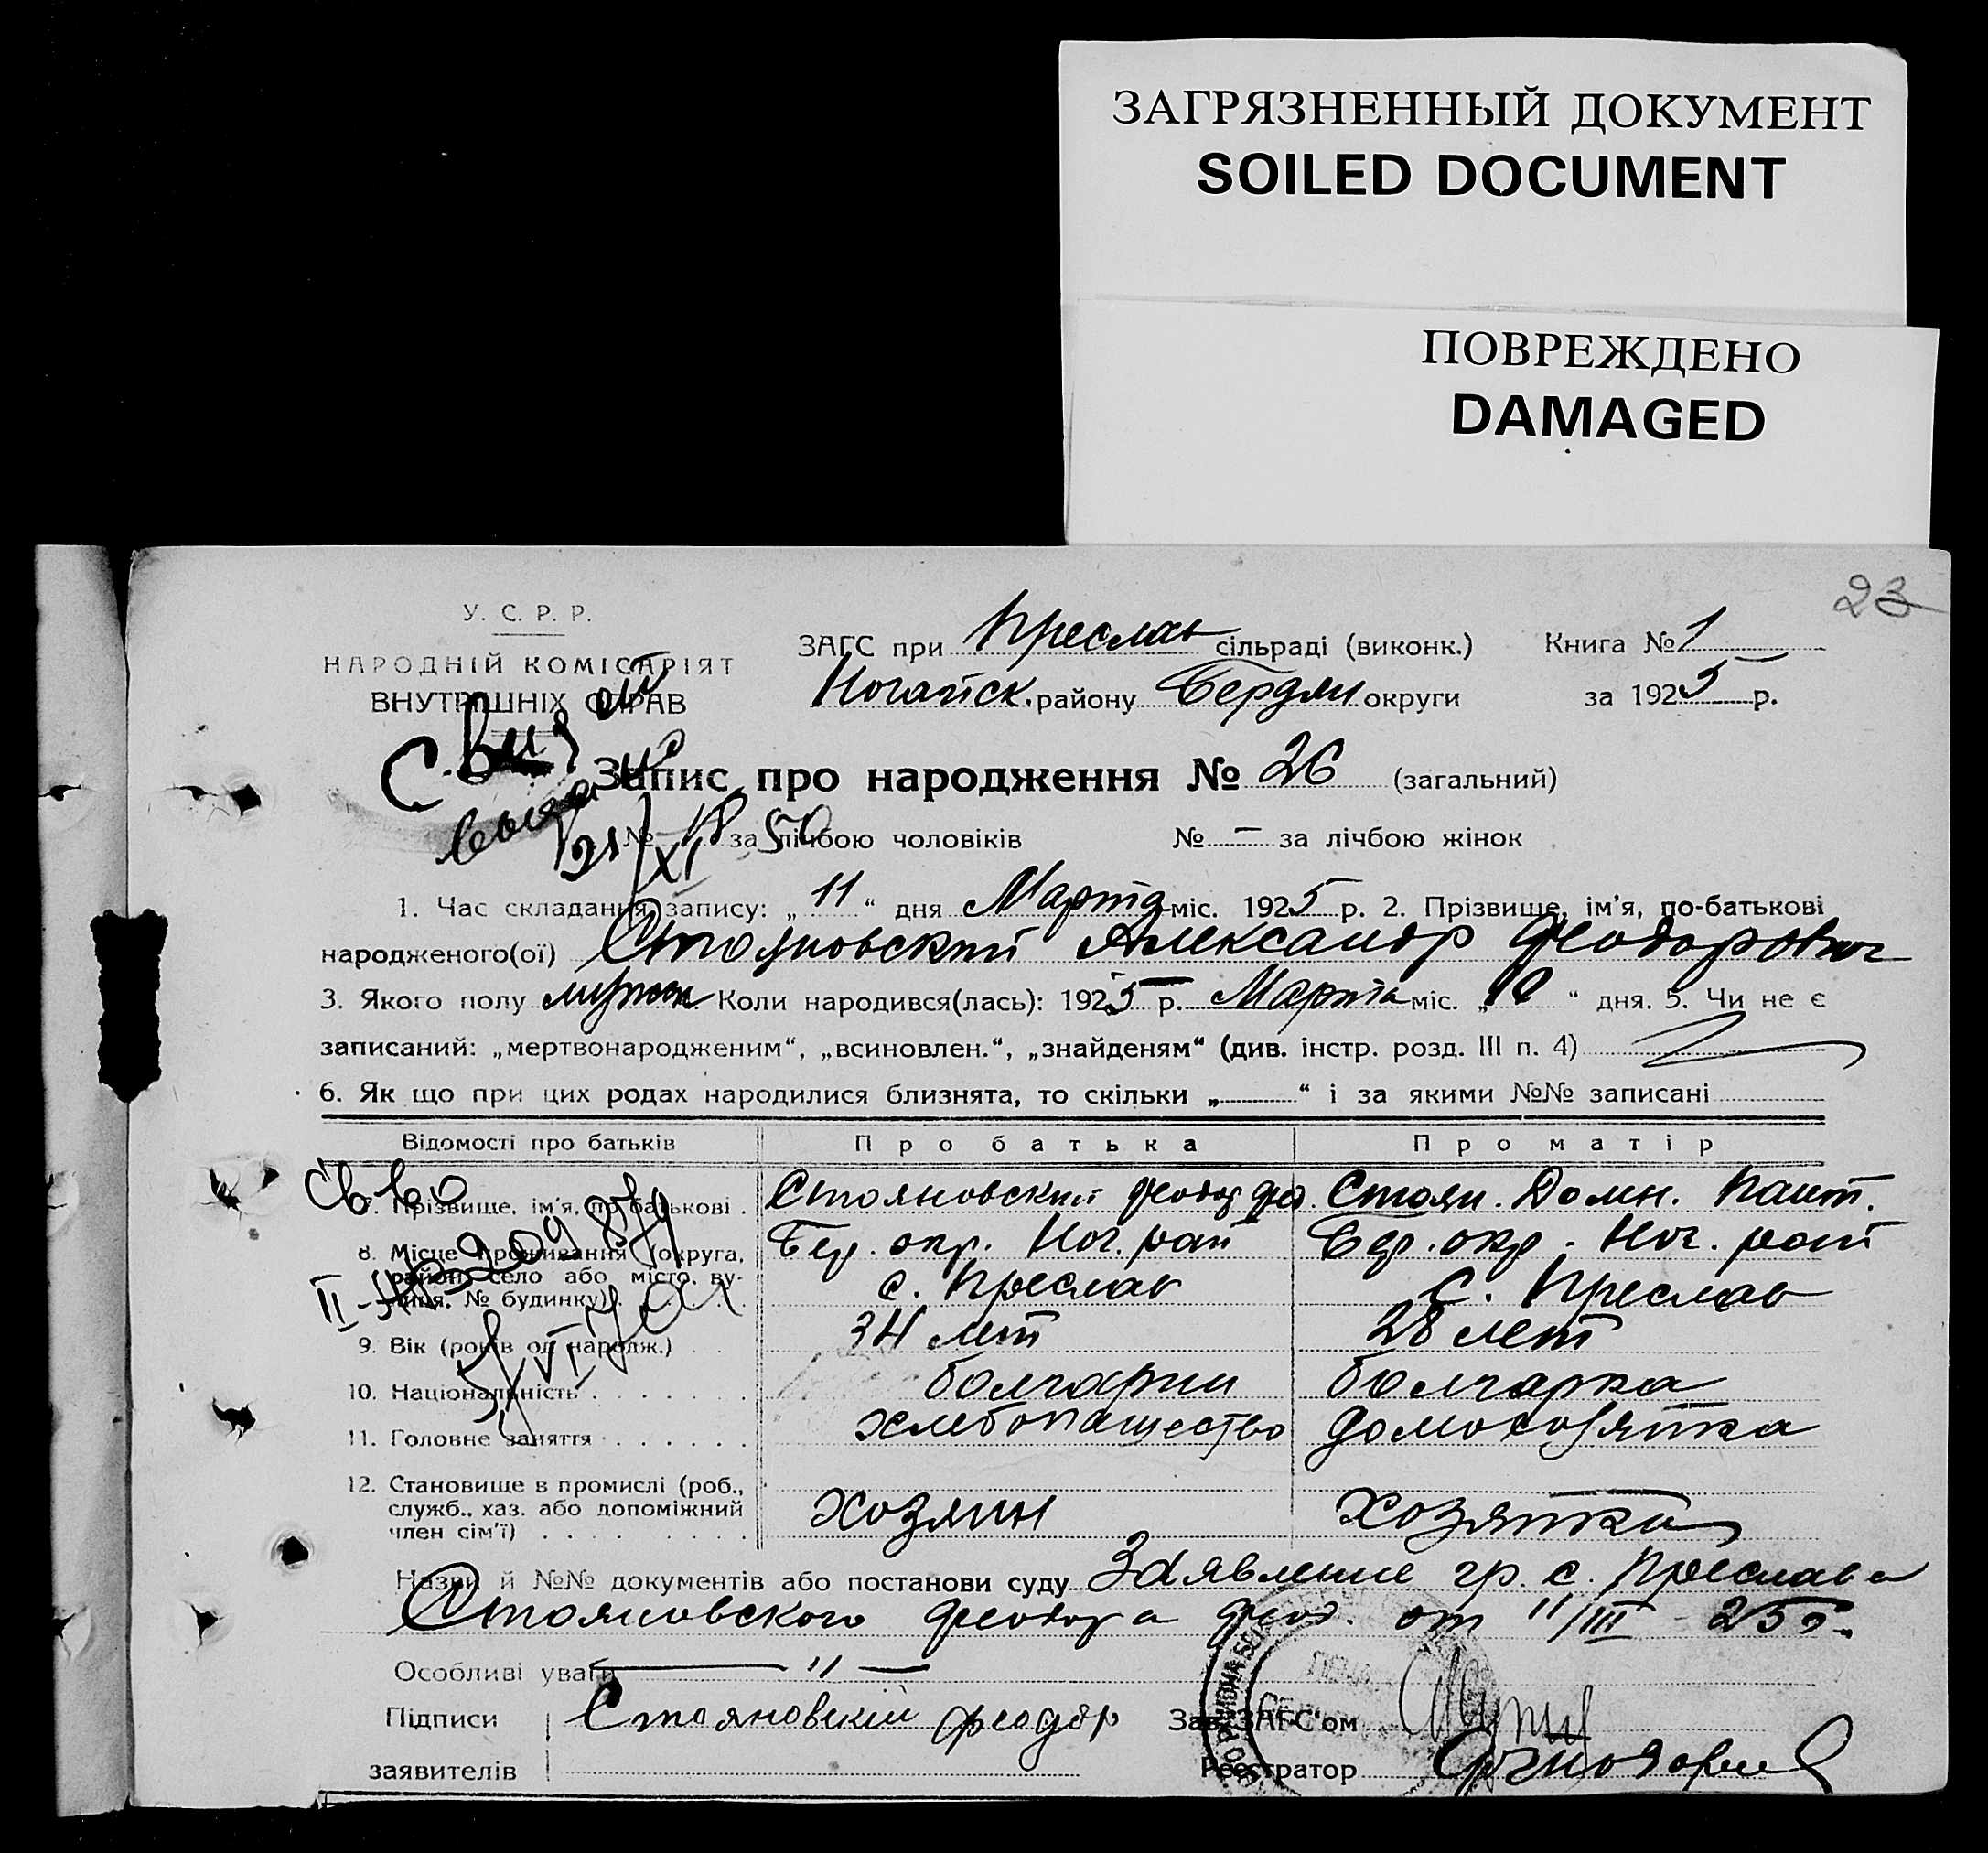 ЗАГРЯЗНЕННЫЙ ДОКУМЕНТ
SOILED DOCUMENT
ПОВРЕЖДЕНО
DAMAGED
23
У. С. Р. Р.
НАРОДНІЙ КОМІСАРІЯТ
ВНУТРІШНІХ СПРАВ
ЗАГС при Преслав сільраді (виконк.) Книга № 1
Ногайск. району Бердян округи за 1925 р.
Запис про народження № 26 (загальний)
№ 18 за лічбою чоловіків № – за лічбою жінок
1. Час складання запису: „ 11 “ дня Марта міс. 1925 р. 2. Прізвище, ім'я, по-батькові
народженого(ої) Стояновский Александр Феодорович
3. Якого полу мужск Коли народився(лась): 1925 р. Марта міс. „ 10 “ дня. 5. Чи не є
записаний: „мертвонародженим“, „всиновлен.“, „знайденям“ (див. інстр. розд. III п. 4)
6. Як що при цих родах народилися близнята, то скільки „ “ і за якими №№ записані
Відомості про батьків Про батька Про матір
7. Прізвище, ім'я, по-батькові . Стояновский Феодор Фед. Стоян. Домн. Пант.
8. Місце проживання (округа, район, село або місто, ву-
лиця, № будинку) Бер. окр. Ног. рай Бер. окр. Ног. рай
с. Преслав с. Преслав
9. Вік (років од народж.) 34 лет 28 лет
10. Національність болгарин болгарка
11. Головне заняття хлебопашество домохозяйка
12. Становище в промислі (роб.,
служб., хаз. або допоміжний
член сім'ї) хозяин хозяйка
Назви й №№ документів або постанови суду Заявление гр. с. Преслава
Стояновского Феодора Феод. от 11/III – 25 г.
Особливі уваги — " —
Підписи Стояновский Феодор Зав. ЗАГС'ом
заявителів Реєстратор